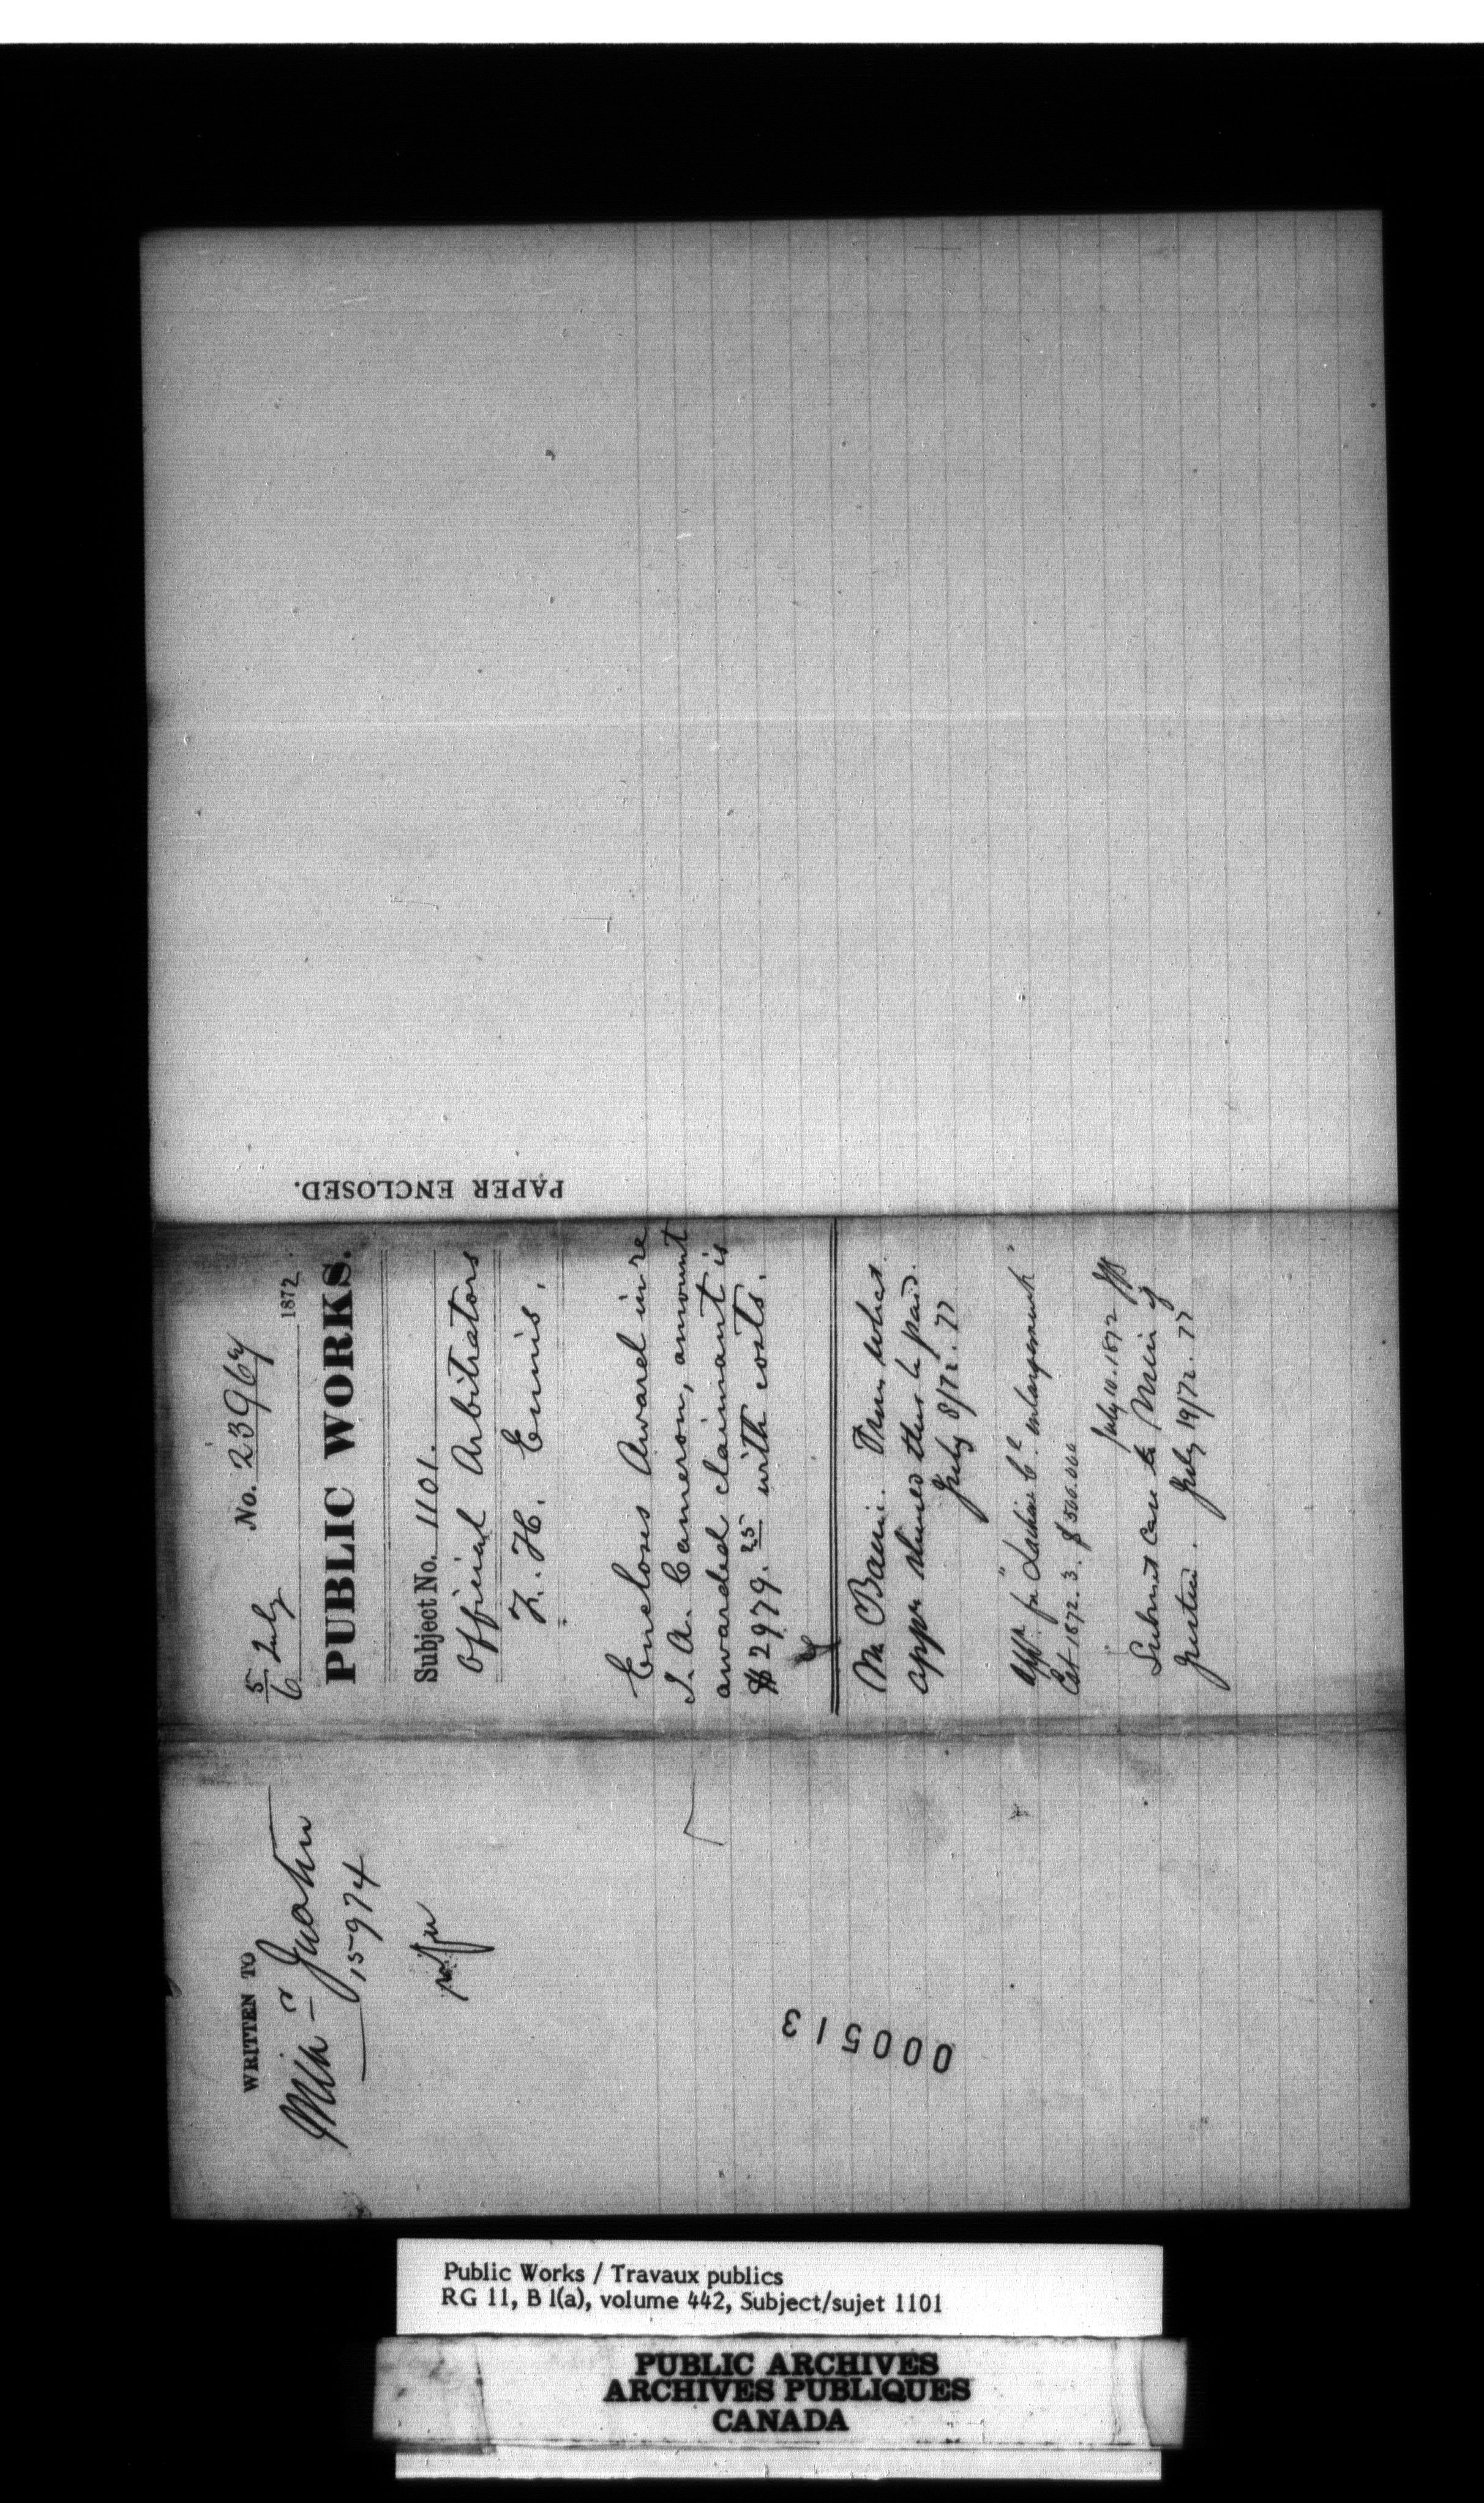 5/6 July No. 23964
1872
PUBLIC WORKS.
Subject No. 1101.
Official Arbitrators
H. Ennis.
Encloses Award in re
J. A. Cameron, amount
awarded claimant is
$2979.25 with costs.
Mr Baine. From what
appn should this be paid.
July 8/72. TT
Appn for "Lachine Cl. enlargement"
Est 1872.3. $500.000
July 10. 1872
Submit case to Minr of
Justice. July 19/72. TT
PAPER ENCLOSED.
WRITTEN TO
Justice
15974
000513
Public Works / Travaux publics
RG 11, B 1(a), volume 442, Subject/sujet 1101
PUBLIC ARCHIVES
ARCHIVES PUBLIQUES
CANADA